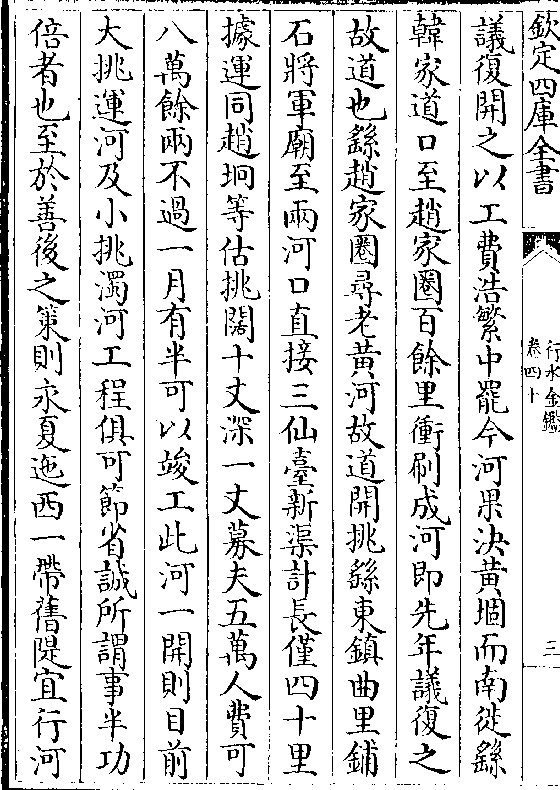 欽定四庫全書
行水金鑑
卷四十
三
議復開之以工費浩繁中罷今河果決黄堌而南徙繇
韓家道口至趙家圏百餘里衝刷成河即先年議復之
故道也繇趙家圏尋老黄河故道開挑繇東鎮曲里鋪
石將軍廟至兩河口直接三仙臺新渠計長僅四十里
據運同趙坰等估挑闊十丈深一丈募夫五萬人費可
八萬餘兩不過一月有半可以竣工此河一開則目前
大挑運河及小挑濁河工程俱可節省誠所謂事半功
倍者也至於善後之策則永夏迤西一帶舊隄宜行河